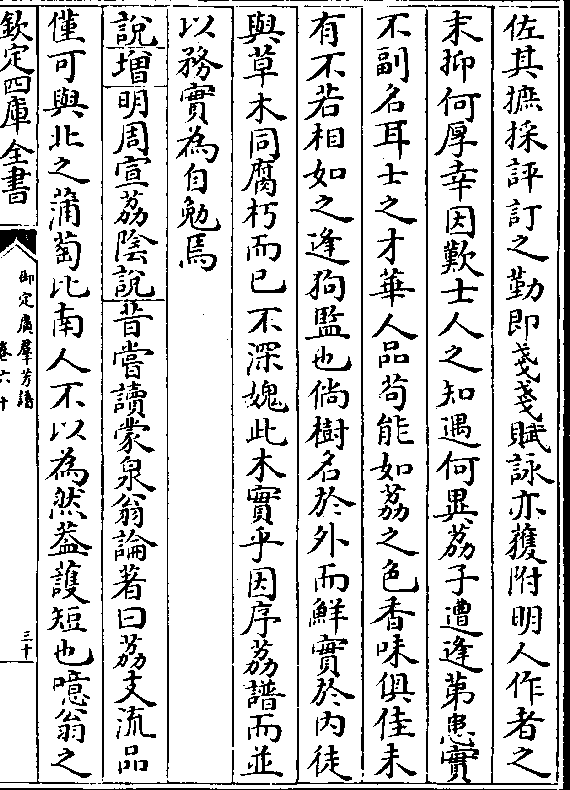 佐其摭採評訂之勤即戔戔賦詠亦獲附明人作者之
末抑何厚幸因歎士人之知遇何異荔子遭逢第患實
不副名耳士之才華人品苟能如荔之色香味俱佳未
有不若相如之逢狗監也倘樹名於外而鮮實於内徒
與草木同腐朽而已不深媿此木實乎因序荔譜而並
以務實為自勉焉
說增明周宣荔陰說昔嘗讀蒙泉翁論著曰荔支流品
僅可與北之蒲萄比南人不以為然葢護短也噫翁之
欽定四庫全書
御定廣羣芳譜
卷六十
三十